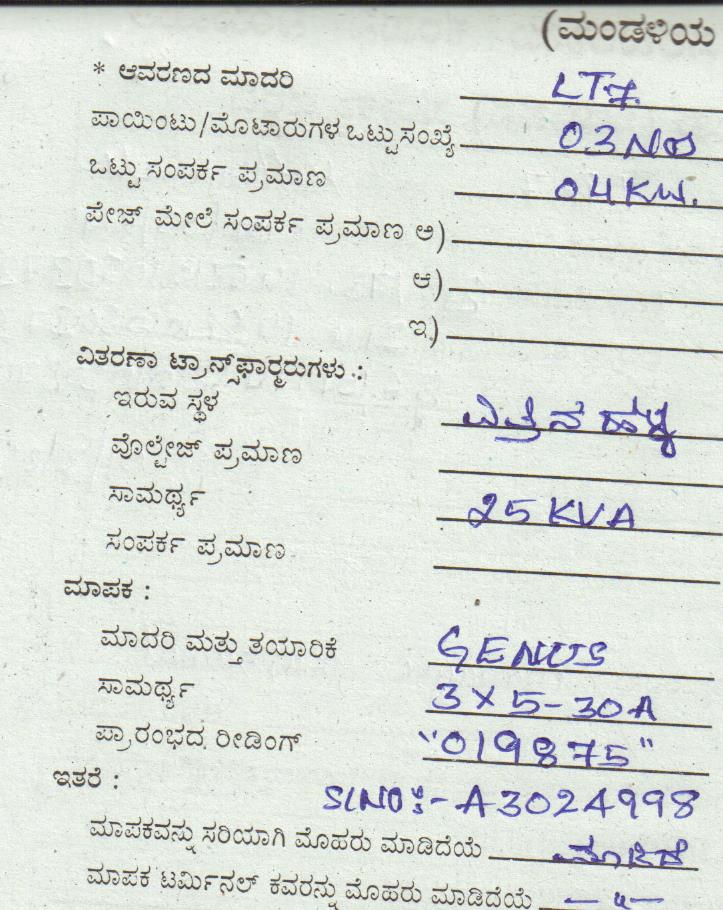 (ಮಂಡಳಿಯ
* ಆವರಣದ ಮಾದರಿ LT7.
ಪಾಯಿಂಟು/ಮೊಟಾರುಗಳ ಒಟ್ಟು ಸಂಖ್ಯೆ 03 NOS
ಒಟ್ಟು ಸಂಪರ್ಕ ಪ್ರಮಾಣ 04 KW.
ಪೇಜ್ ಮೇಲೆ ಸಂಪರ್ಕ ಪ್ರಮಾಣ ಅ)
ಆ)
ಇ)
ವಿತರಣಾ ಟ್ರಾನ್ಸ್‌ಫಾರ್ಮರುಗಳು :
ಇರುವ ಸ್ಥಳ
ವೊಲ್ಟೇಜ್ ಪ್ರಮಾಣ
ಸಾಮರ್ಥ್ಯ 25 KVA
ಸಂಪರ್ಕ ಪ್ರಮಾಣ
ಮಾಪಕ :
ಮಾದರಿ ಮತ್ತು ತಯಾರಿಕೆ GENUS
ಸಾಮರ್ಥ್ಯ 3 X 5-30A
ಪ್ರಾರಂಭದ ರೀಡಿಂಗ್ "019875"
ಇತರೆ : SLNO:- A3024998
ಮಾಪಕವನ್ನು ಸರಿಯಾಗಿ ಮೊಹರು ಮಾಡಿದೆಯೆ ಮಾಡಿದೆ
ಮಾಪಕ ಟರ್ಮಿನಲ್ ಕವರನ್ನು ಮೊಹರು ಮಾಡಿದೆಯೆ — " —